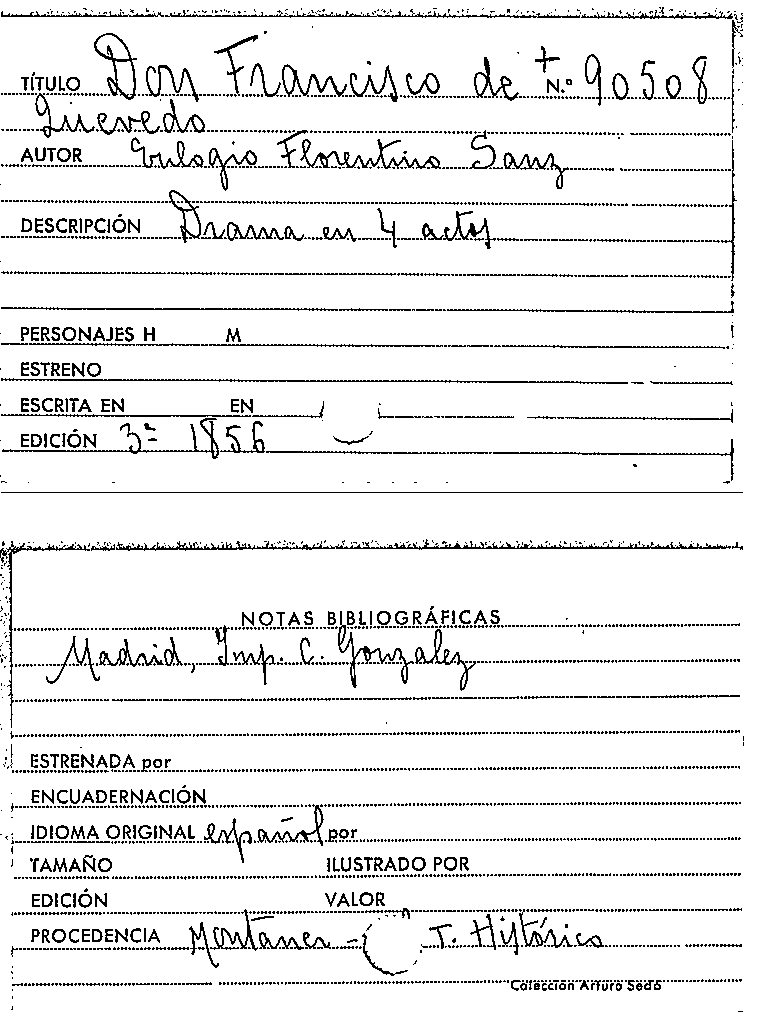 TÍTULO Don Francisco de + N.º 90508
Quevedo
AUTOR Eulogio Florentino Sanz
DESCRIPCIÓN Drama en 4 actos
PERSONAJES H M
ESTRENO
ESCRITA EN EN
EDICIÓN 3ª 1856
NOTAS BIBLIOGRÁFICAS
Madrid, Imp. C. Gonzalez
ESTRENADA por
ENCUADERNACIÓN
IDIOMA ORIGINAL español por
TAMAÑO ILUSTRADO POR
EDICIÓN VALOR
PROCEDENCIA Montaner - T. Histórico
Colección Arturo Sedó